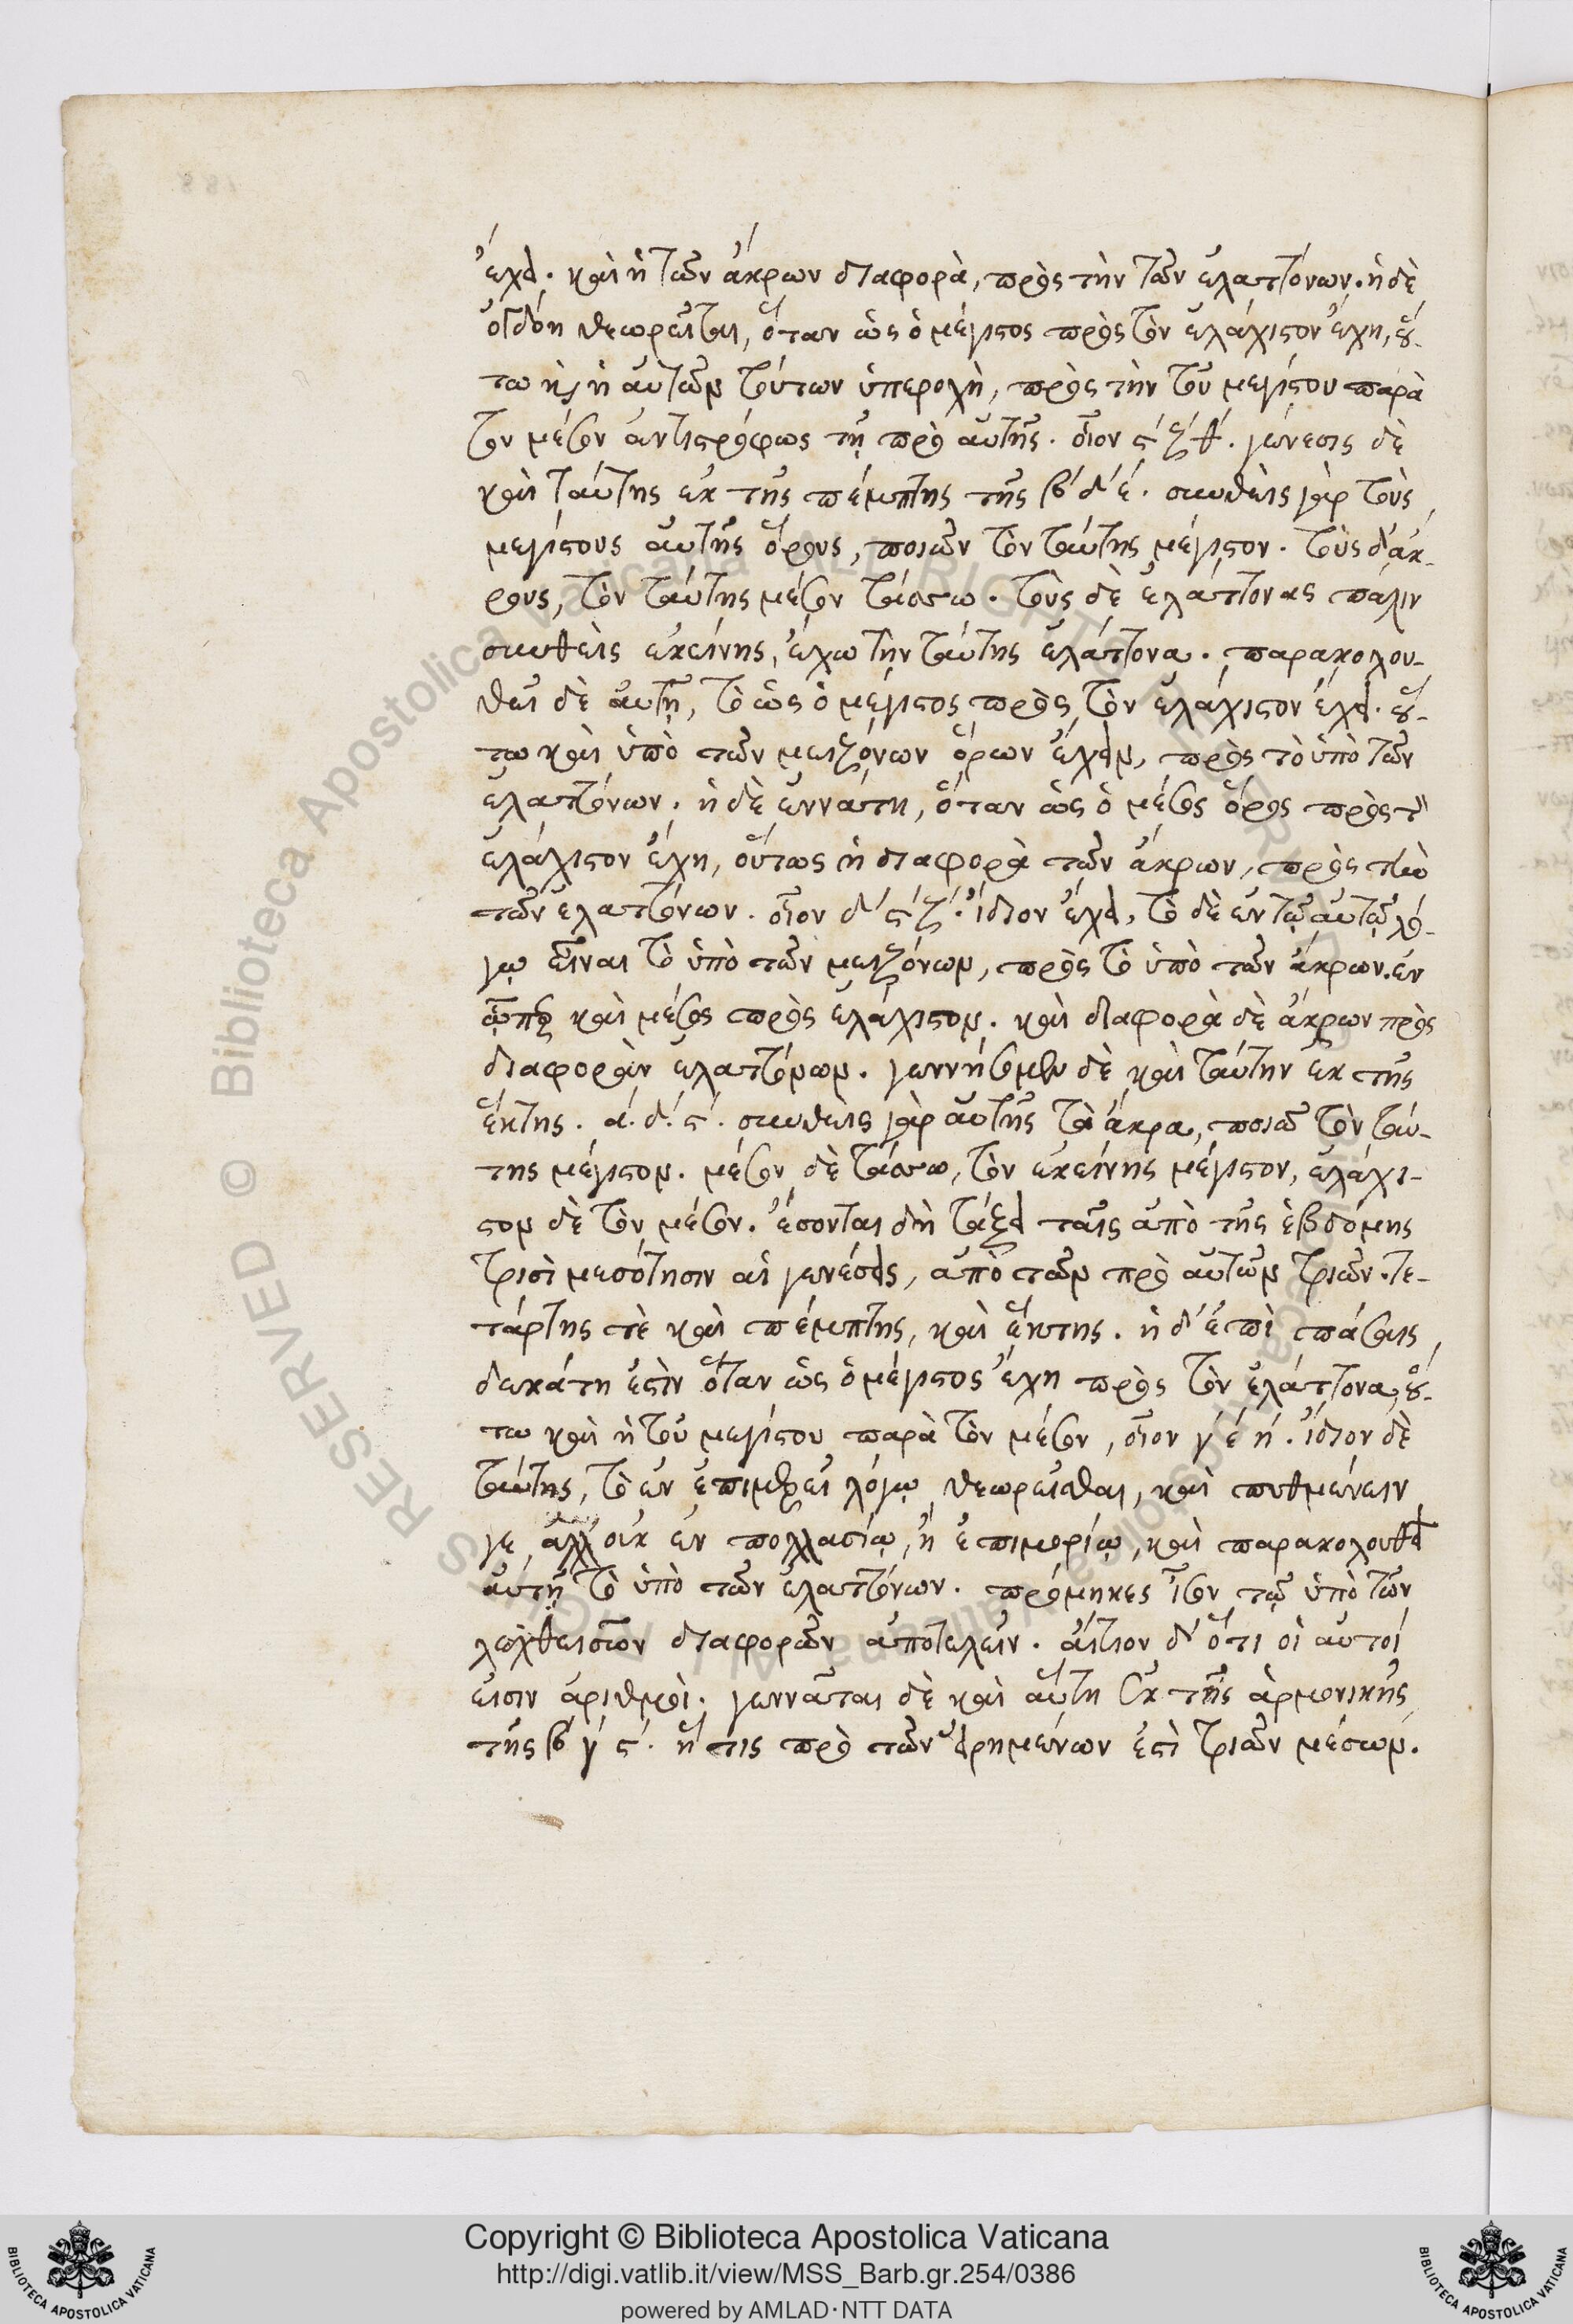 ἔχει. καὶ ἡ τῶν ἄκρων διαφορὰ, πρὸς τὴν τῶν ἐλαττόνων. ἡ δὲ
ὀγδόη θεωρεῖται, ὅταν ὡς ὁ μέγιστος πρὸς τὸν ἐλάχιστον ἔχη, οὕ-
τω καὶ ἡ αὐτῶν τούτων ὑπεροχὴ, πρὸς τὴν τοῦ μεγίστου παρὰ
τὸν μέσον ἀντιστρόφως τῇ πρὸ αὐτῆς. οἷον ϛ΄ ζ΄ θ΄. γένεσις δὲ
καὶ ταύτης ἐκ τῆς πέμπτης τῆς β΄ δ΄ ε΄. συνθεὶς γὰρ τοὺς
μεγίστους αὐτῆς ὅρους, ποιῶν τὸν ταύτης μέγιστον. τοὺς δ' ἄκ-
ρους, τὸν ταύτης μέσον τάσσω. τοὺς δὲ ἐλάττονας πάλιν
συνθεὶς ἐκείνης, ἔχω τὴν ταύτης ἐλάττονα. παρακολου-
θεῖ δὲ αὐτῇ, τὸ ὡς ὁ μέγιστος πρὸς τὸν ἐλάχιστον ἔχει. οὕ-
τω καὶ ὑπὸ τῶν μειζόνων ὅρων ἔχειν, πρὸς τὸ ὑπὸ τῶν
ἐλαττόνων. ἡ δὲ ἐννάτη, ὅταν ὡς ὁ μέσος ὅρος πρὸς τὸν
ἐλάχιστον ἔχη, οὕτως ἡ διαφορὰ τῶν ἄκρων, πρὸς τὴν
τῶν ἐλαττόνων. οἷον δ΄ ϛ΄ ζ΄. ἴδιον ἔχει, τὸ δὲ ἐν τῷ αὐτῷ λό-
γῳ εἶναι τὸ ὑπὸ τῶν μειζόνων, πρὸς τὸ ὑπὸ τῶν ἄκρων. ἐν
ᾧπερ καὶ μέσος πρὸς ἐλάχιστον. καὶ διαφορὰ δὲ ἄκρων πρὸς
διαφορὰν ἐλαττόνων. γεννήσομεν δὲ καὶ ταύτην ἐκ τῆς
ἕκτης. α΄. δ΄. ϛ΄. συνθεὶς γὰρ αὐτῆς τὰ ἄκρα, ποιῶ τὸν ταύ-
της μέγιστον. μέσον δὲ τάσσω, τὸν ἐκείνης μέγιστον, ἐλάχι-
στον δὲ τὸν μέσον. ἔσονται δὴ τάξει ταῖς ἀπὸ τῆς ἑβδόμης
τρισὶ μεσότησιν αἱ γενέσεις, ἀπὸ τῶν πρὸ αὐτῶν τριῶν. τε-
τάρτης τὲ καὶ πέμπτης, καὶ ἕκτης. ἡ δ' ἐπὶ πάσαις
δεκάτη ἐστὶν ὅταν ὡς ὁ μέγιστος ἔχη πρὸς τὸν ἐλάττονα, οὕ-
τω καὶ ἡ τοῦ μεγίστου παρὰ τὸν μέσον, οἷον γ΄ ε΄ η΄. ἴδιον δὲ
ταύτης, τὸ ἐν ἐπιμερεῖ λόγῳ θεωρεῖσθαι, καὶ πυθμένειν
γε, ἀλλ' οὐκ ἐν πολλασίῳ, ἢ ἐπιμορίῳ, καὶ παρακολουθεῖ
αὐτῇ τὸ ὑπὸ τῶν ἐλαττόνων. πρόμηκες ἶσον τῷ ὑπὸ τῶν
λεχθεισῶν διαφορῶν ἀποτελεῖν. αἴτιον δ' ὅτι οἱ αὐτοί
εἰσιν ἀριθμοὶ. γεννᾶται δὲ καὶ αὕτη ἐκ τῆς ἁρμονικῆς
τῆς β΄ γ΄ ϛ΄. ἥ τις πρὸ τῶν εἰρημένων ἐστὶ τριῶν μέσων.
Copyright © Biblioteca Apostolica Vaticana
http://digi.vatlib.it/view/MSS_Barb.gr.254/0386
powered by AMLAD·NTT DATA